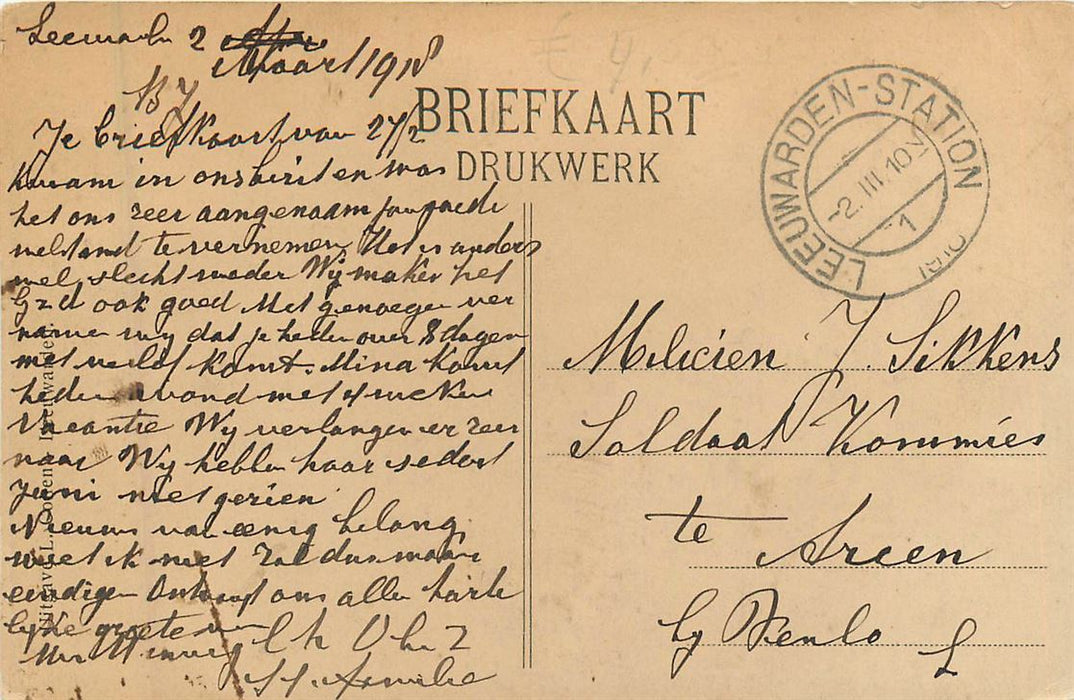 2 Maart 1918
Je briefkaart van 27/2
kwam in ons bezit en was
het ons zeer aangenaam jou goede
welstand te vernemen Het is anders
wel slecht weder Wij maken het
ook goed Met genoegen ver
namen wij dat je heden over 8 dagen
met verlof komt. Mina komt
heden avond met 4 weken
Vacantie Wij verlangen er zeer
naar Wij hebben haar sedert
Juni niet gezien
Nieuws van eenig belang
weet ik niet Zal dus maar
eindigen Ontvangt ons aller harte
lijke groeten
BRIEFKAART
DRUKWERK
LEEUWARDEN-STATION
-2.III.10
1
Milicien J. Sikkens
Soldaat Kommies
te
Arcen
by Venlo